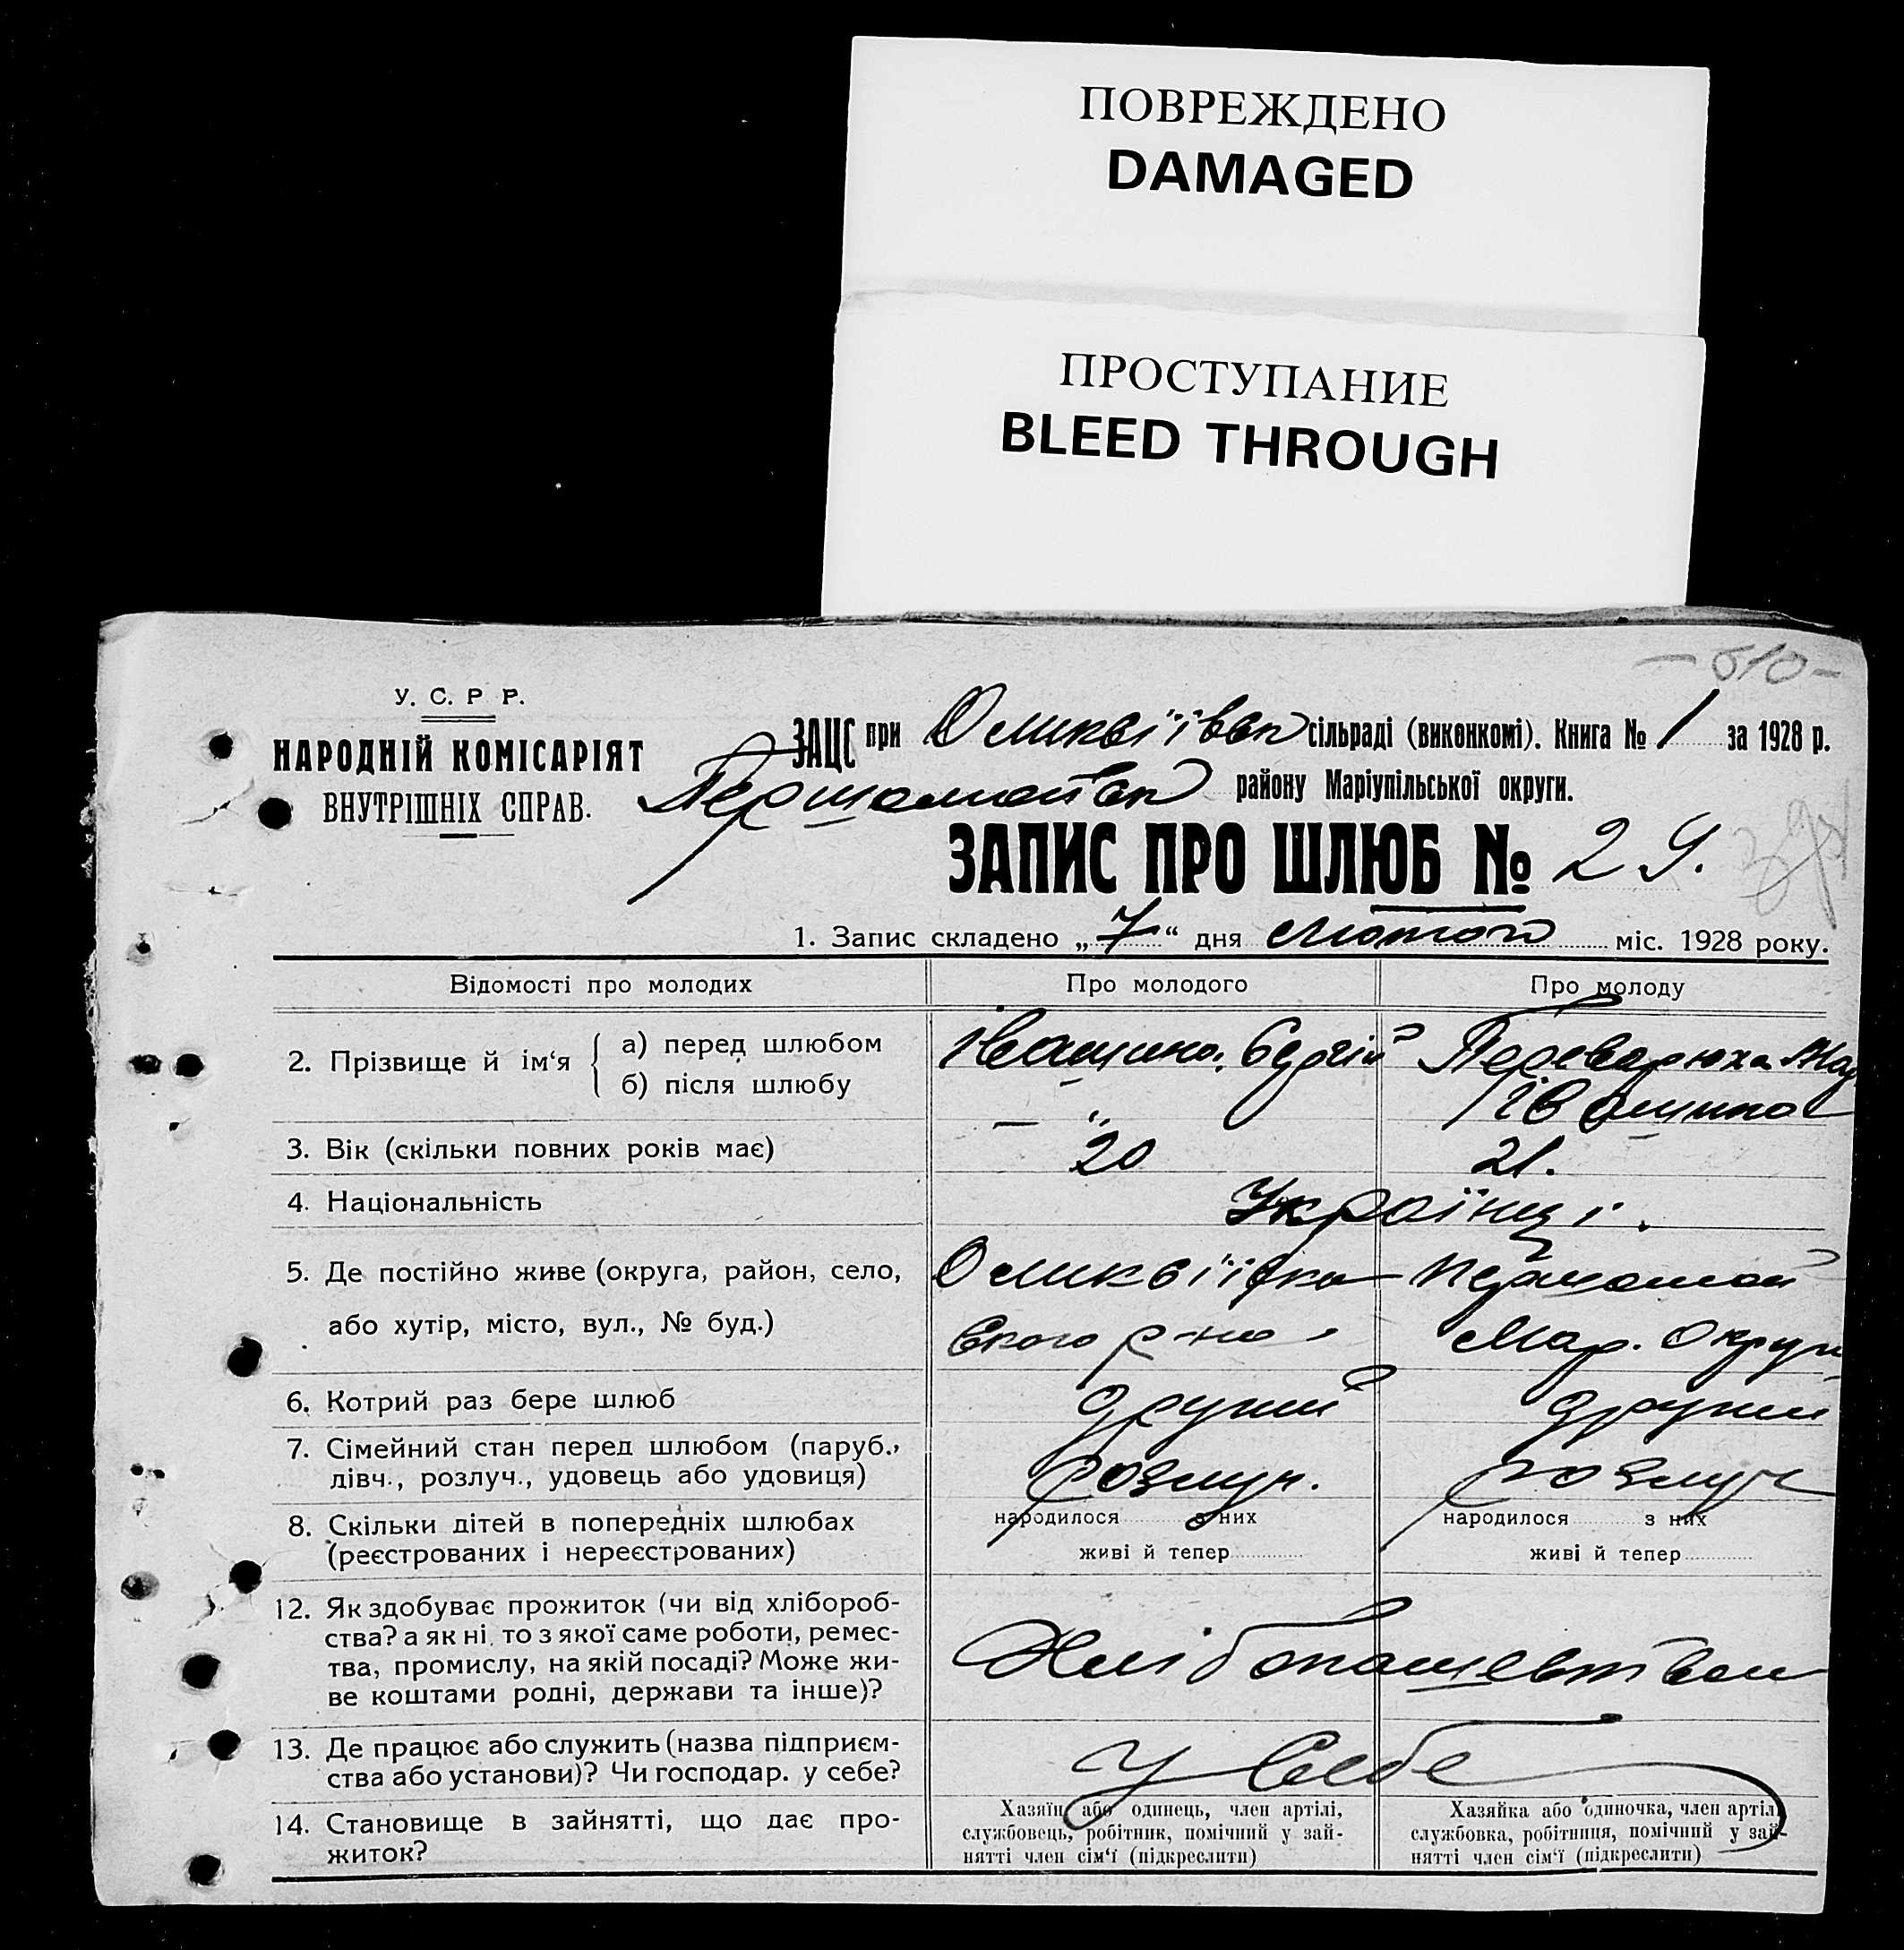 ПОВРЕЖДЕНО
DAMAGED
ПРОСТУПАНИЕ
BLEED THROUGH
– 510 –
У. С. Р Р.
НАРОДНІЙ КОМІСАРІЯТ
ВНУТРІШНІХ СПРАВ.
ЗАЦС при сільраді (виконкомі). Книга № 1 за 1928 р.
району Маріупільської округи.
ЗАПИС ПРО ШЛЮБ № 29.
1. Запис складено „7“ дня Лютого міс. 1928 року.
Відомості про молодих Про молодого Про молоду
2. Прізвище й ім‘я { а) перед шлюбом
б) після шлюбу
3. Вік (скільки повних років має) 20 21.
4. Національність Українці.
5. Де постійно живе (округа, район, село, Першотрав
або хутір, місто, вул., № буд.) ського р-на, Мар. Округи
6. Котрий раз бере шлюб другий другий
7. Сімейний стан перед шлюбом (паруб.,
дівч., розлуч., удовець або удовиця) розлуч. розлуч
8. Скільки дітей в попередніх шлюбах народилося з них народилося з них
(реєстрованих і нереєстрованих) живі й тепер живі й тепер
12. Як здобуває прожиток (чи від хлібороб-
ства? а як ні, то з якої саме роботи, ремес-
тва, промислу, на якій посаді? Може жи-
ве коштами родні, держави та інше)?
13. Де працює або служить (назва підприєм-
ства або установи)? Чи господар. у себе? У себе
14. Становище в зайнятті, що дає про-
житок?
Хазяїн або одинець, член артілі,
службовець, робітник, помічний у зай-
нятті член сім‘ї (підкреслити)
Хазяйка або одиночка, член артілі
службовка, робітниця, помічний у зай-
нятті член сім‘ї (підкреслити)